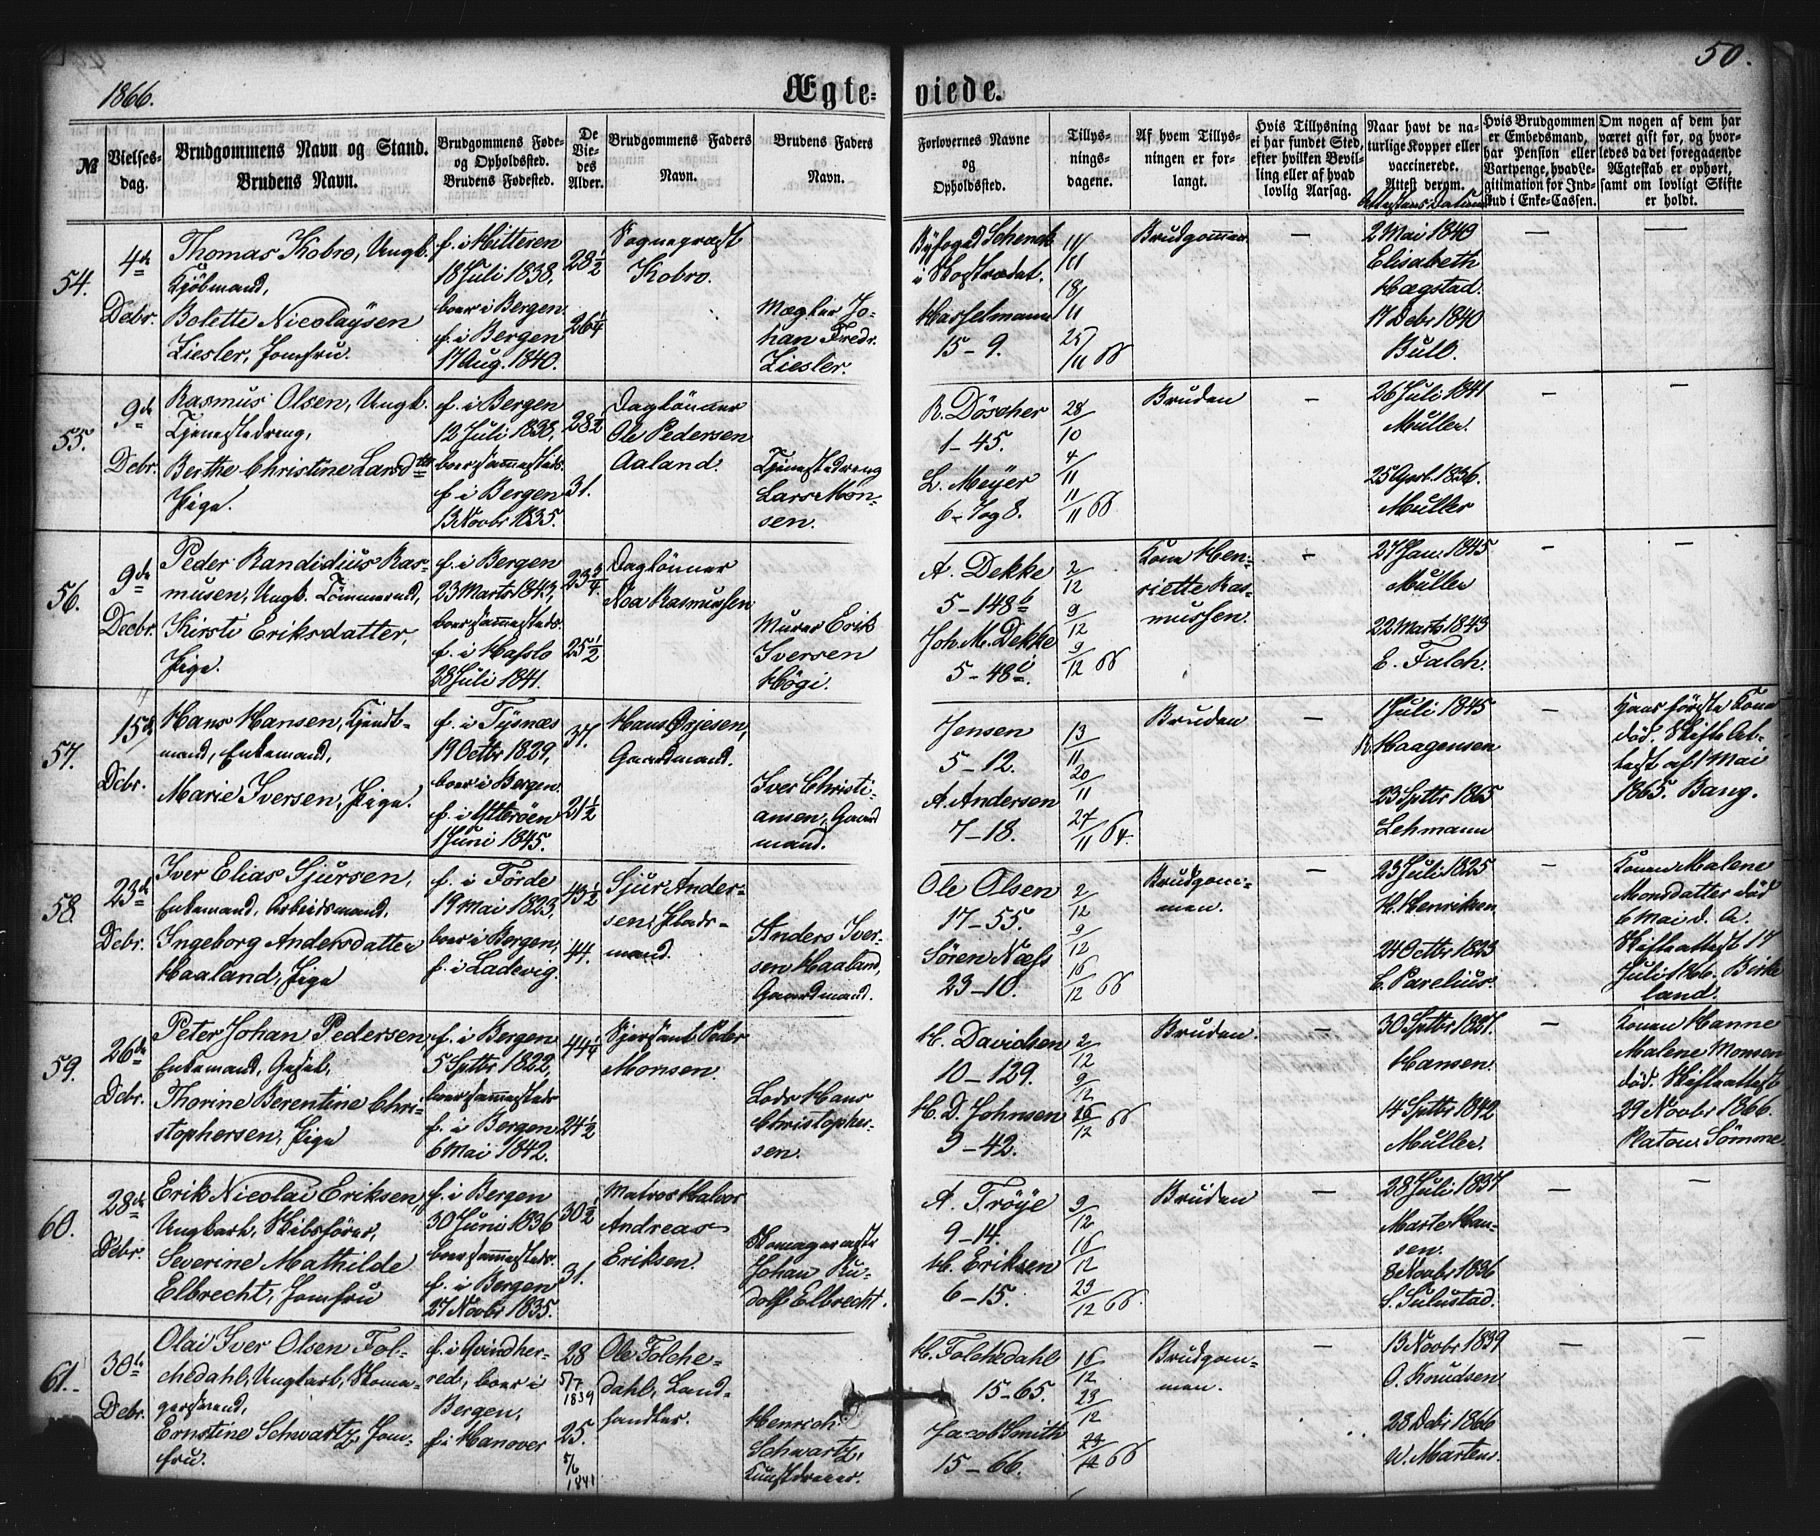 1866.
Ægte-
viede.
50.
№
Vielses-
dag.
Brudgommens Navn og Stand.
Brudens Navn.
Brudgommens Føde-
og Opholdssted.
Brudens Fødested.
De
Vie-
des
Alder.
Brudgommens Faders
Navn.
Brudens Faders
Navn.
Forlovernes Navne
og
Opholdssted.
Tillys-
nings-
dagene.
Af hvem Tillys-
ningen er for-
langt.
Hvis Tillysning
ei har fundet Sted,
efter hvilken Bevil-
ling eller af hvad
lovlig Aarsag.
Naar havt de na-
turlige Kopper eller
vaccinerede.
Attest derom.
Attestens Datum
Hvis Brudgommen
er Embedsmand,
har Pension eller
Vartpenge, hvad Le-
gitimation for Ind-
skud i Enke-Cassen.
Om nogen af dem har
været gift før, og hvor-
ledes da det foregaaende
Ægteskab er ophørt,
samt om lovligt Skifte
er holdt.
54.
4de
Decbr.
Thomas Kobro, Ungk.
Kjøbmand,
Bolette Nicolaysen
Ziesler, Jomfru.
f. i Hitteren
18 Juli 1838,
boer i Bergen.
f. i Bergen
17 Aug. 1840.
28½
26¼
Sognepræst
Kobro.
Mægler Jo-
han Fredr.
Ziesler.
Byfoged Schenck
i Kostrædet.
Hasselmann
15-9.
11/11
18/11
25/11 66
Brudgommen
—
2 Mai 1840
Elisabeth
Hægstad.
17 Debr 1840
Bull.
—
—
55.
9de
Decbr.
Rasmus Olsen, Ungk.
Tjenestedreng,
Berthe Christine Larsdtter
Pige.
f. i Bergen
12 Juli 1838,
boer sammesteds.
f. i Bergen
13 Novbr 1835.
28½
31.
Daglönner
Ole Pedersen
Aaland.
Tjenestedreng
Lars Mon-
sen.
R. Döscher
1-45.
L. Meyer
6-7og8.
28/10
4/11
11/11 66
Bruden
—
26 Juli 1841
Müller.
25 April. 1836.
Müller
—
—
56.
9de
Decbr.
Peder Randidius Ras-
musen, Ungk. Tömmermd,
Kirsti Eriksdatter,
Pige.
f. i Bergen
23 Marts 1843,
boer sammesteds.
f. i Hafslo
28 Juli 1841.
23¾
25½
Daglönner
Noa Rasmussen
Murer Erik
Iversen
Högi.
A. Dekke
5-148b
Joh. M. Dekke
5-48i.
2/12
9/12
9/12 66
Kone Hen-
riette Ras-
mussen.
—
27 Jan. 1845
Müller
22 Marts 1843
E. Falch.
—
—
57.
15de
Debr.
Hans Hansen, Kjendt-
mand, Enkemand,
Marie Iversen, Pige.
f. i Tysnæs
19 Octbr 1829,
boer i Bergen.
f. i Ytterøen
1 Juni 1845.
37.
21½
Hans Ørjesen,
Gaardmand.
Iver Christi-
ansen, Gaard
mand.
Jensen
5-12.
A. Andersen
7-18.
13/11
20/11
27/11 64.
Bruden
—
1 Juli 1845
R. Haagensen
23 Sptbr 1865
Lehmann
—
Hans förste Kone
död. Skifte At-
test af 1 Mai
1865. Bang.
58.
23de
Debr.
Iver Elias Sjursen,
Enkemand, Arbeidsmand,
Ingeborg Andersdatter
Haaland, Pige
f. i Förde
19 Mai 1823,
boer i Bergen,
f. i Ladevig.
43½
44.
Sjur Ander-
sen, Plads-
mand.
Anders Iver-
sen Haaland,
Gaardmand.
Ole Olsen
17-55.
Sören Næss
23-10.
2/12
9/12
16/12 66
Brudgom-
men.
—
23 Juli 1825
H. Henriksen.
24 Octbr 1823
C. Parelius.
—
Konen Malene
Monsdatter död
6 Mai d. A.
Skifteattest 17
Juli 1866. Birke
land.
59.
26de
Debr.
Peter Johan Pedersen,
Enkemand, Gesel,
Thorine Berentine Chri-
stophersen, Pige
f. i Bergen
5 Sptbr 1822,
boer sammesteds
f. i Bergen
6 Mai 1842.
44¼
24½
Sjersant Peder
Monsen.
Lods Hans
Christopher-
sen.
H. Davidsen
10-129.
H. D. Johnsen
9-42.
2/12
9/12
16/12 66
Bruden.
—
30 Sptbr 1827.
Hansen.
14 Sptbr 1842
Müller.
—
Konen Hanne
Malene Monsen
död. Skifteattest
29 Novbr 1866.
Platou. Sömme.
60.
28de
Debr.
Erik Nicolai Eriksen,
Ungkarl, Skibsförer,
Severine Mathilde
Elbrecht, Jomfru
f. i Bergen
30 Juni 1836
boer sammesteds.
f. i Bergen
27 Novbr 1835.
30½
31.
Matros Halvor
Andreas
Eriksen.
Skomagermestr
Johan Ru-
dolf Elbrecht.
A. Tröye
9-14.
H. Eriksen
6-15.
9/12
16/12
23/12 66.
Bruden
—
28 Juli 1837
Marte Han-
sen.
8 Novbr 1836
S. Sulustad.
—
—
61.
30te
Debr.
Olai Iver Olsen Fol-
chedahl, Ungkarl, Skoma-
gersvend,
Ernstine Schwartz, Jom-
fru.
f. i Qvindher-
red, boer i
Bergen,
f. i Hanover
28
5/7
1839
25.
5/6
1841
Ole Folche-
dahl, Land-
handler.
Henrich
Schwartz,
Kunstdreier.
H. Folchedahl
15-65.
Jacob Smith
15-66.
16/12
23/12
23/12 66
Brudgom-
men.
—
13 Novbr 1839
O. Knudsen
28 Debr 1866
W. Martens.
—
—